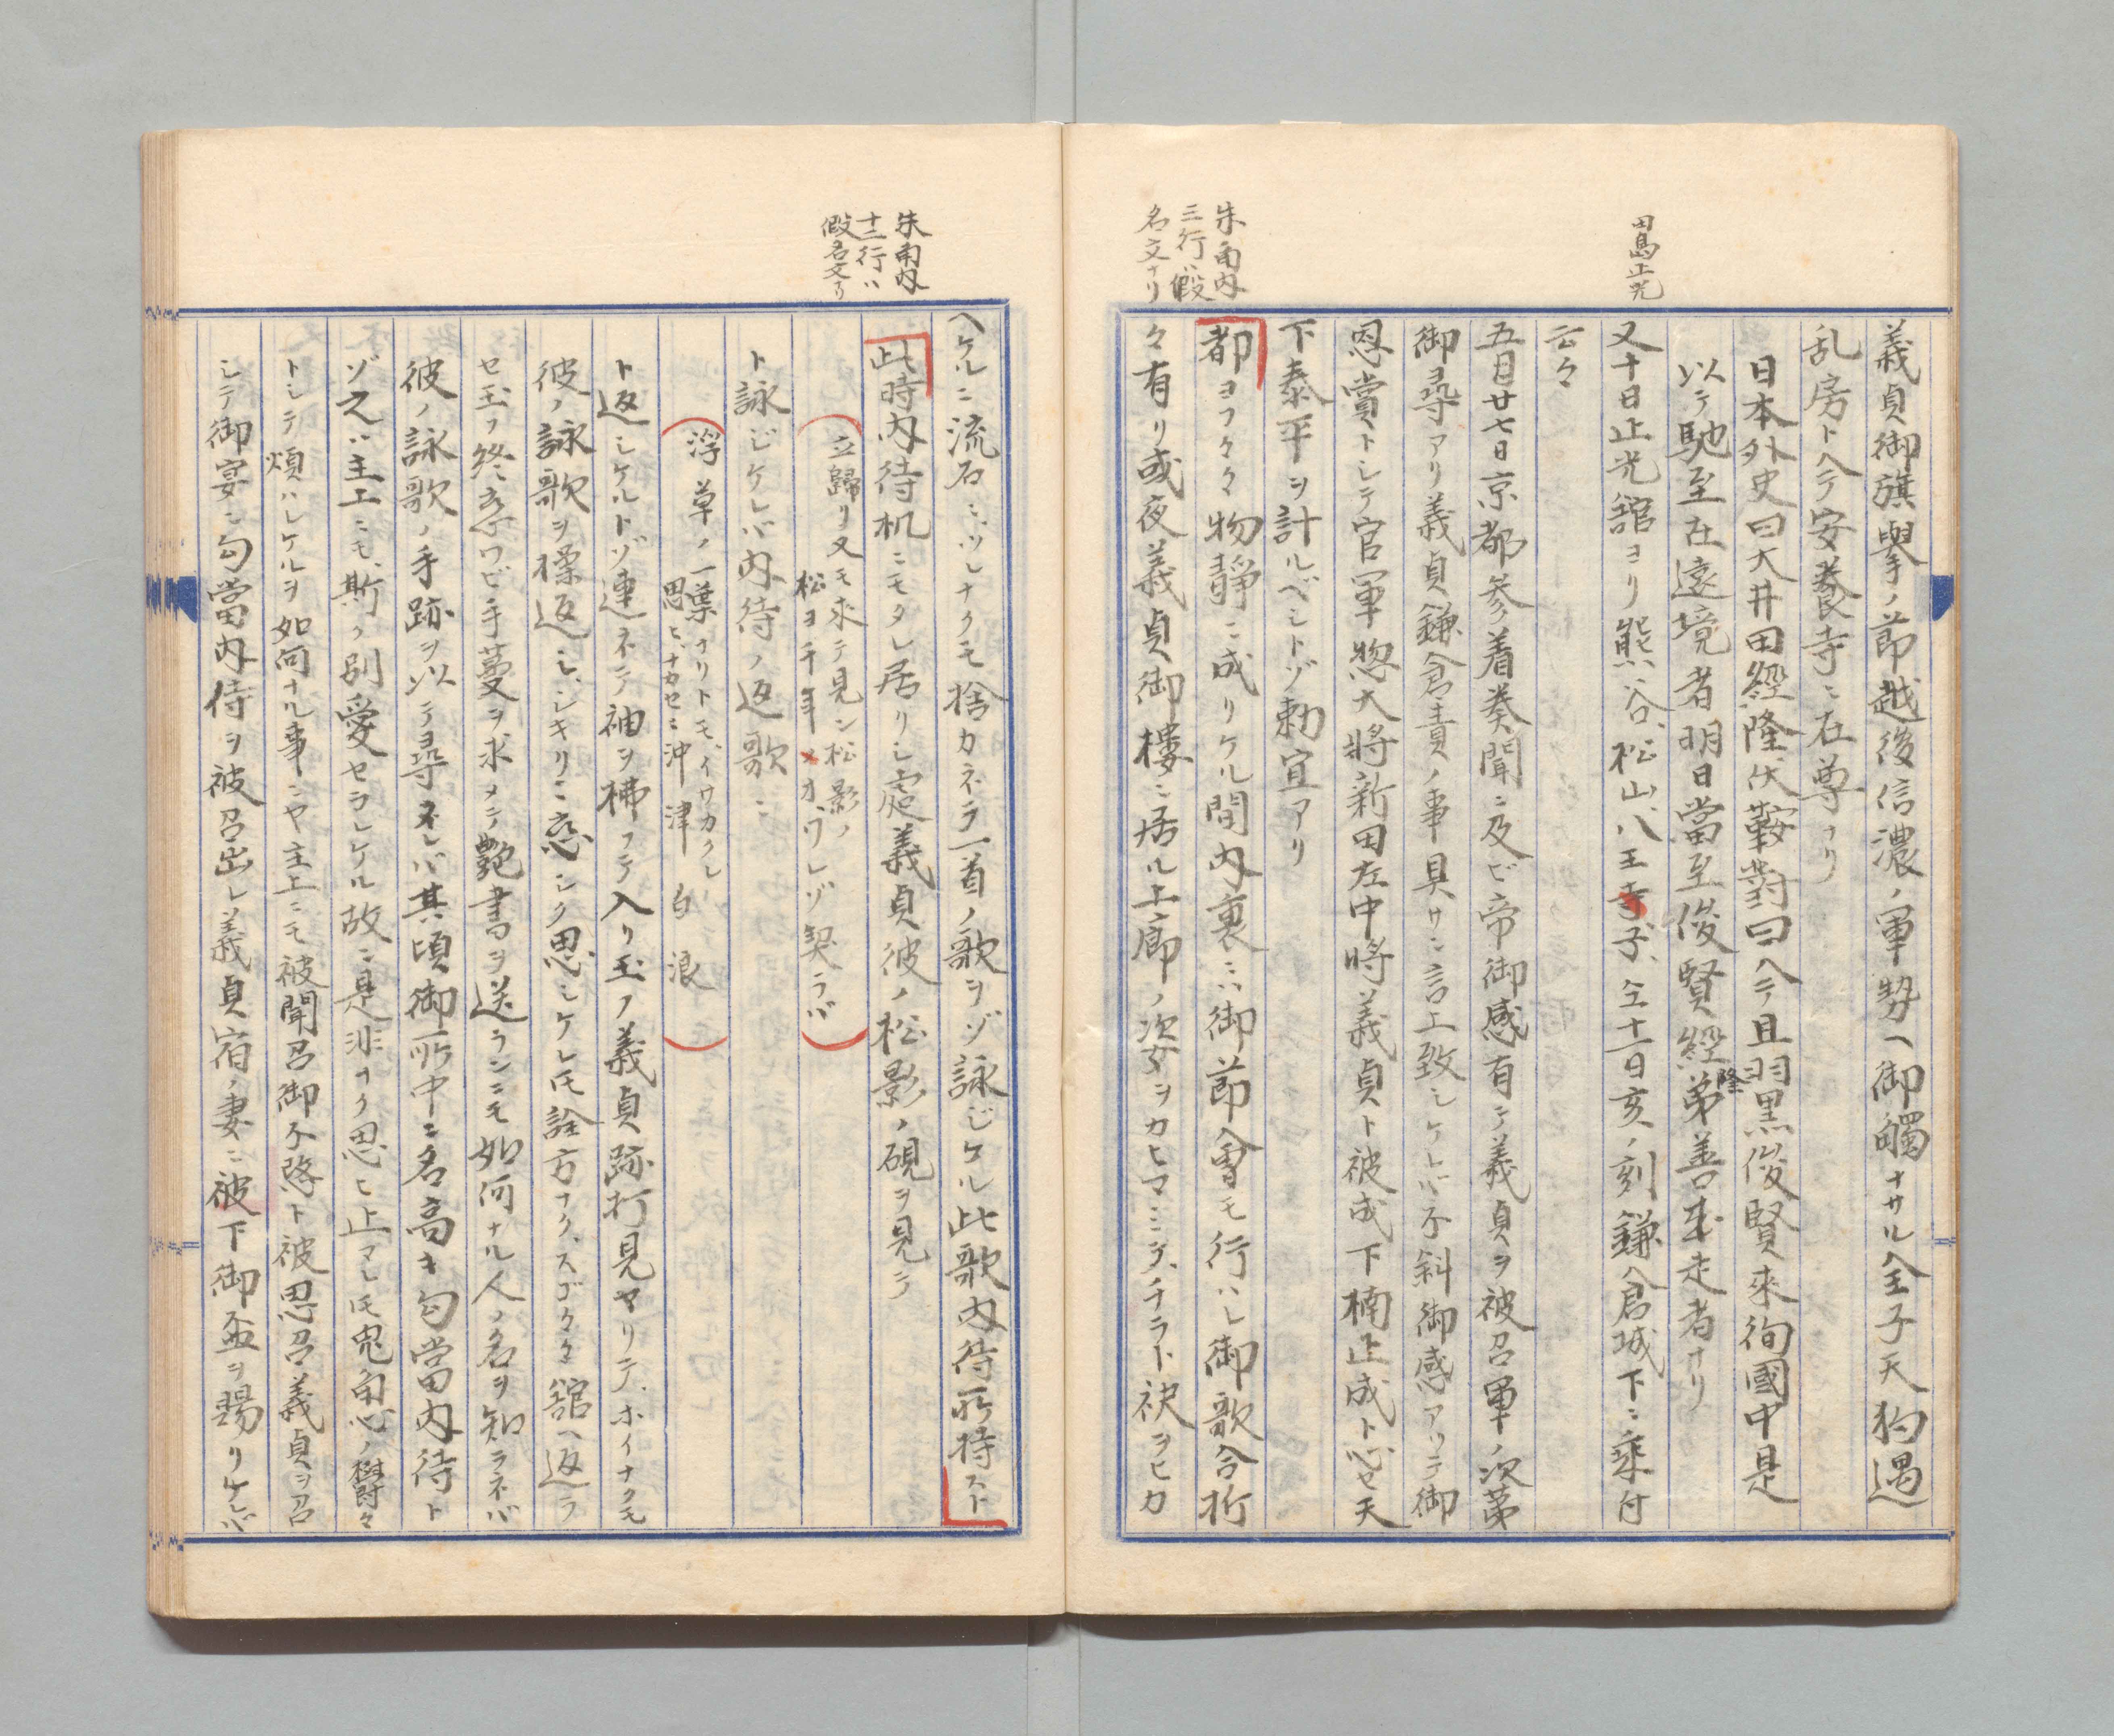 田島正光
義貞御旗擧ノ節越後信濃ノ軍勢ヘ御觸ナサル仝子天狗遇
乱房トヘテ安養寺ニ在尊ナリ
日本外史曰大井田經隆伏鞍對曰ヘテ且羽黒俊賢來徇國中是
以テ馳至在遠境者明日當至俊賢經隆弟善走走者ナリ
又十日止光舘ヨリ熊谷、松山、八王寺子、仝十一日亥ノ刻鎌倉城下ニ乘付
云々
五月廿七日京都參着奏聞ニ及ビ帝御感有テ義貞ヲ被召軍ノ次第
御尋アリ義貞鎌倉責ノ事具サニ言上致シケレバ不斜御感アリテ御
恩賞トシテ官軍惣大將新田左中將義貞ト被成下楠正成ト心セ天
下泰平ヲ計ルベシトゾ勅宣アリ
朱画内
三行ハ假
名文ナリ
都ヨフクク物靜ニ成リケル間内裏ニハ御節會モ行ハレ御歌合折
々有リ或夜義貞御樓ニ居ル上廊ノ姿ヲカヒマミテ、チラト袂ヲヒカ
ヘケルニ流石ニツレナクモ捨カネテ一首ノ歌ヲゾ詠ジケル此歌内待所持スト
朱画内
十二行ハ
假名文ナリ
此時内待机ニモタレ居リシ處義貞彼ノ松影ノ硯ヲ見テ
立歸リ又モ求テ見ン松影ノ
松ヨ千年メオ、ワレゾ契ラバ
ト詠ジケレバ内待ノ返歌ニ
浮草ノ一葉ナリトモ、イワカクレ
思ヒ、ナカセニ沖津白浪
ト返シケルトゾ連ネテ袖ヲ拂フテ入リ玉フ義貞跡打見ヤリテ、ホイナクモ
彼ノ詠歌ヲ操返シ、シキリニ恋シク思シケレ圧詮方ナク、スゴクク舘ヘ返ラ
セ玉フ終ニ恋ワビ手蔓ヲ求メテ艶書ヲ送ランニモ如何ナル人ノ名ヲ知ラネバ
彼ノ詠歌ノ手跡ヲ以テ尋ネレバ其頃御所中ニ名高キ勾當内待ト
ゾ之ハ主上ニモ、斯ク別愛セラレケル故ニ是非ナク思ヒ止マレ圧兎角心ノ欝々
トシテ煩ハレケルヲ如何ナル事ニヤ主上ニモ被聞召御不憐ト被思召義貞ヲ召
シテ御宴ニ勾當内侍ヲ被召出レ義貞宿ノ妻ニ被下御盃ヲ賜リケレバ